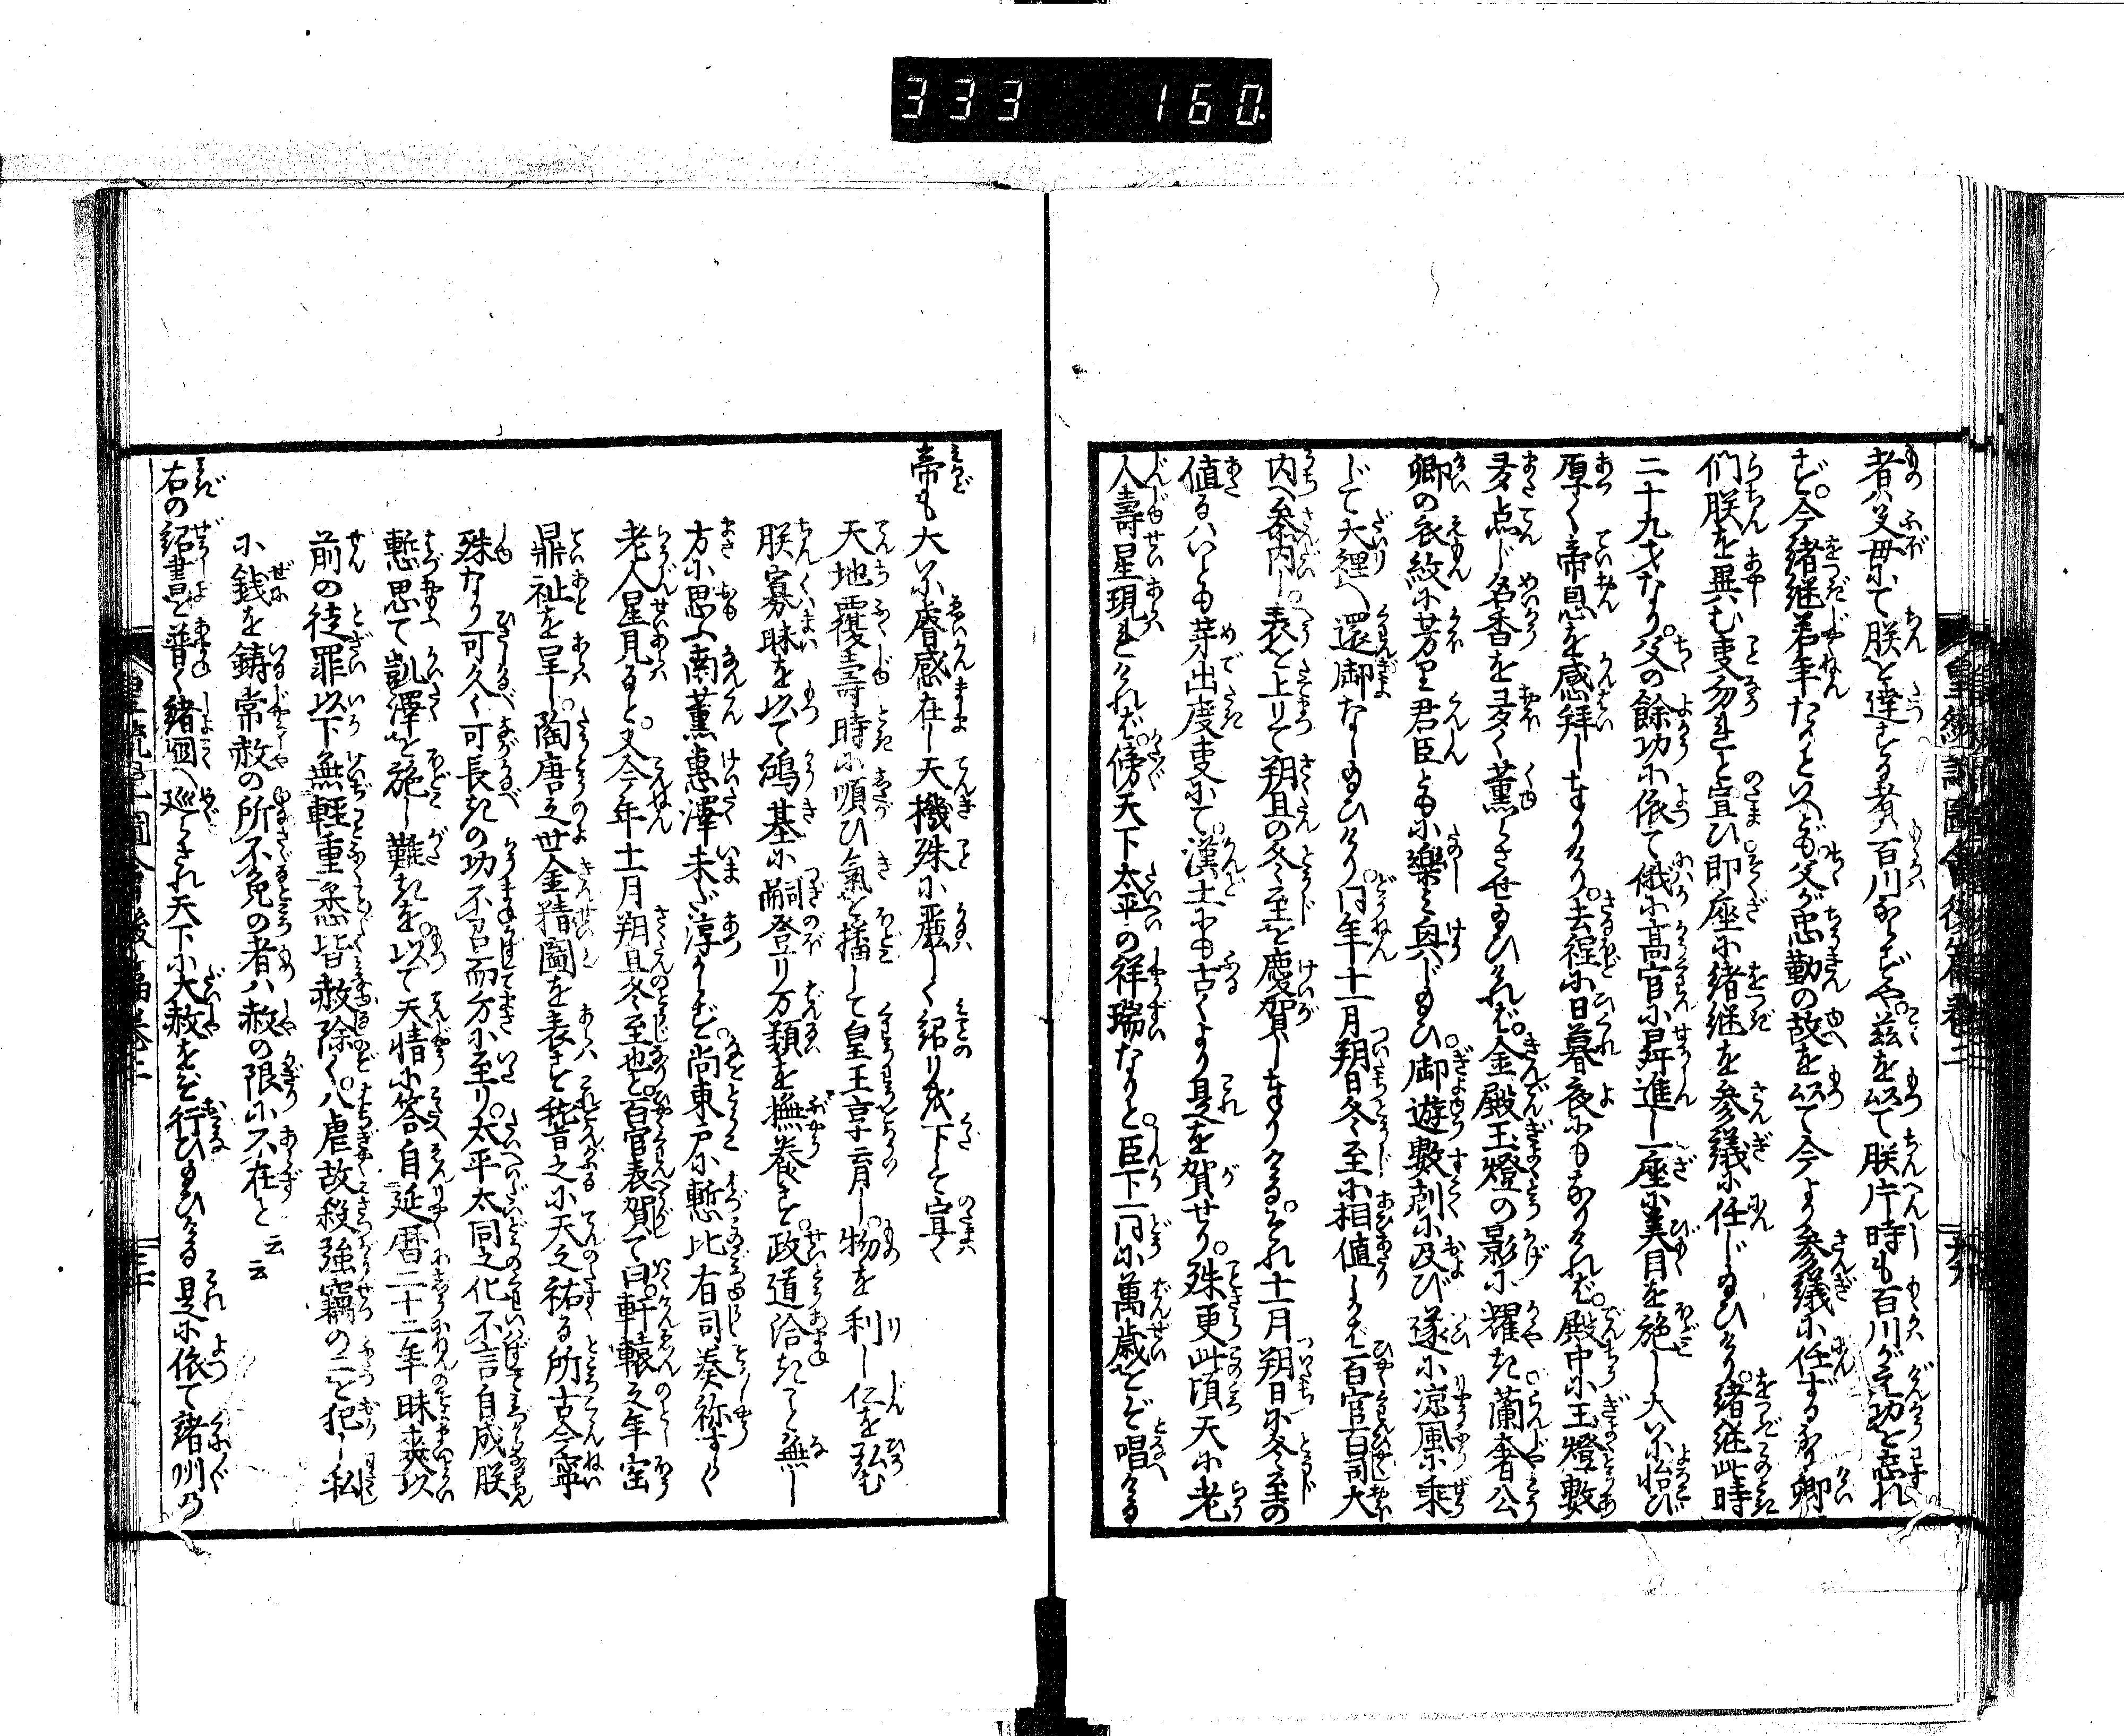 333 160
者ハ父母にて朕を達する者ハ百川ならずや。茲を以て朕片時も百川が元功を忘れ
ず。今緒継若年なりといへども父が忠勤の故を以て今より参議に任ずるなり卿
們朕を異む事勿れと宣ひ即座に緒継を参議に任じ給ひけり。緒継此時
二十九才なり。父の餘功に依て俄に高官に昇進し一座に美目を施し大に怡び
厚く帝恩を感拝し奉りけり。去程に日暮夜にもなりければ。殿中に玉燈数
多点じ名香を多く薫らさせ給ひければ。金殿玉燈の影に耀き蘭奢公
卿の衣紋に芳り君臣とも小楽み興じ給ひ。御遊数刻に及び遂に涼風に乗
じて大裡へ還御なし給ひけり。同年十一月朔日冬至に相値しかば百官百司大
内へ参内し。表を上りて朔旦の冬至を慶賀し奉りける。それ十一月朔日に冬至の
値るハいとも芽出度事にて。漢土にも古くより是を賀せり。殊更此頃天に老
人壽星現れければ。傍天下太平の祥瑞なりと。臣下一同に萬歳をぞ唱へける
帝も大に睿感在し天機殊に麗しく詔り或下して宣く
天地覆壽時に順ひ氣を播して皇王享育し。物を利し仁を弘む
朕寡昧を以て鴻基に嗣登り万類を撫養す。政道洽きこと無し
方に思ふ南薫惠澤未だ淳からず。尚東戸に慙比有司奏称すらく
老人星見ると。又今年十一月朔旦冬至也と。百官表賀て曰軒轅之年宝
鼎祉を呈し。陶唐之世金精圖を表すと稽昔之に天之祐る所古今寧
殊なり可久く可長きの功不召而方に至り。太平太同之化不言自成朕
慙思て凱澤を施し難きを。以て天情に答自延暦二十二年昧爽以
前の徒罪以下無軽重悉皆赦除く。八虐故殺強竊の二を犯し私
に銭を鋳常赦の所不免の者ハ赦の限に不在と云云
右の詔書を普く緒國へ巡らされ天下に大赦をぞ行ひ給ひける是に依て諸州の